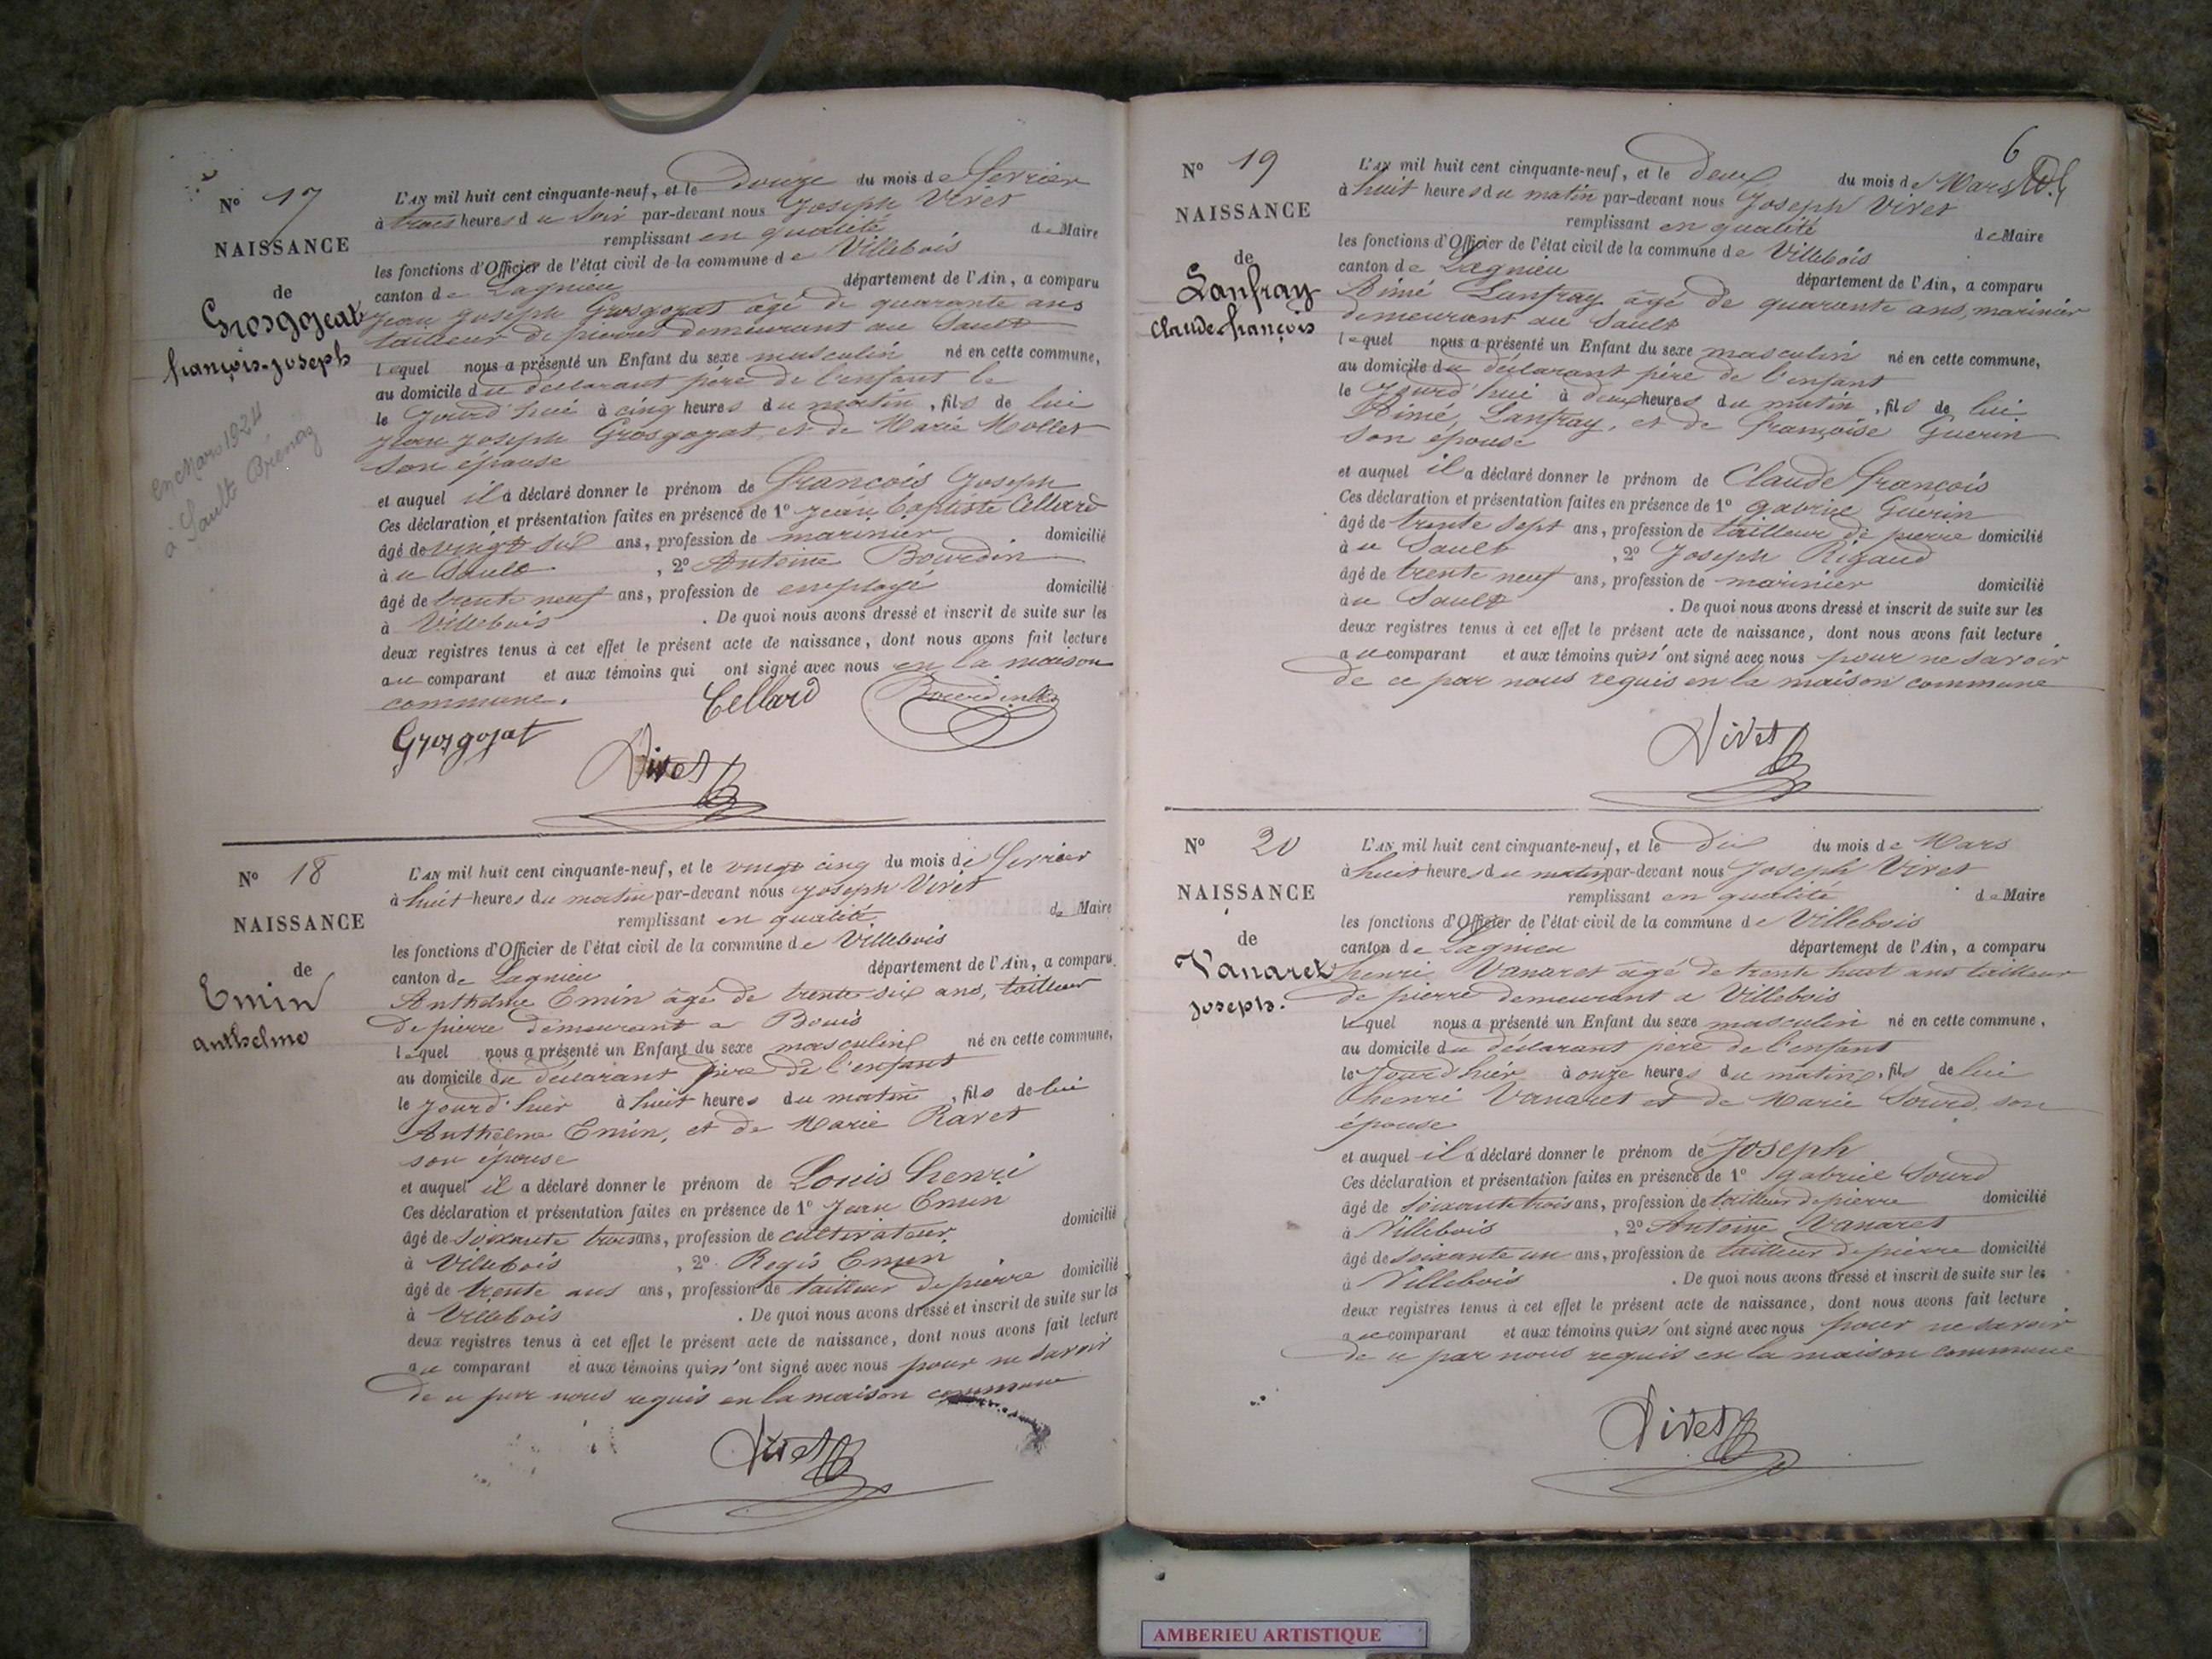 N° 17
NAISSANCE
de
Grosgojeat
françois-joseph
en Mars 1924
à Sault Brénaz
L'AN mil huit cent cinquante-neuf, et le Douze du mois de fevrier
à trois heures du soir par-devant nous Joseph Vivet
remplissant en qualité de Maire
les fonctions d'Officier de l'état civil de la commune de Villebois
canton de Lagnieu département de l'Ain, a comparu
Jean Joseph Grosgojat âgé de quarante ans
tailleur de pierres demeurant au Sault
lequel nous a présenté un Enfant du sexe masculin né en cette commune,
au domicile du déclarant père de l'enfant le
le jourd'hui à cinq heures du matin, fils de lui
Jean Joseph Grosgojat et de Marie Mollet
son épouse
et auquel il a déclaré donner le prénom de François Joseph
Ces déclaration et présentation faites en présence de 1° Jean baptiste Cellard
âgé de vingt six ans, profession de marinier domicilié
à u Sault, 2° Antoine Bourdin
âgé de trente neuf ans, profession de employé domicilié
à Villebois. De quoi nous avons dressé et inscrit de suite sur les
deux registres tenus à cet effet le présent acte de naissance, dont nous avons fait lecture
au comparant et aux témoins qui ont signé avec nous en la maison
commune.
Cellard Bourdin
Grosgojat
Vivet
N° 18
NAISSANCE
de
Emin
anthelme
L'AN mil huit cent cinquante-neuf, et le vingt cinq du mois de fevrier
à huit heures du matin par-devant nous Joseph Vivet
remplissant en qualité de Maire
les fonctions d'Officier de l'état civil de la commune de Villebois
canton de Lagnieu département de l'Ain, a comparu
Anthelme Emin âgé de trente six ans, tailleur
de pierre demeurant a Bouis
lequel nous a présenté un Enfant du sexe masculin né en cette commune,
au domicile du déclarant père de l'enfant
le jourd'hier à huit heures du matin, fils de lui
Anthelme Emin, et de Marie Ravet
son épouse
et auquel il a déclaré donner le prénom de Louis henri
Ces déclaration et présentation faites en présence de 1° Jean Emin
âgé de soixante trois ans, profession de cultivateur domicilié
à Villebois, 2° Regis Emin
âgé de trente ans ans, profession de tailleur de pierre domicilié
à Villebois. De quoi nous avons dressé et inscrit de suite sur les
deux registres tenus à cet effet le présent acte de naissance, dont nous avons fait lecture
au comparant et aux témoins qui n'ont signé avec nous pour ne savoir
de ce par nous requis en la maison commune
Vivet
6
N° 19
NAISSANCE
de
Lanfray
Claude-françois
L'AN mil huit cent cinquante-neuf, et le deux du mois de Mars
à huit heures du matin par-devant nous Joseph Vivet
remplissant en qualité de Maire
les fonctions d'Officier de l'état civil de la commune de Villebois
canton de Lagnieu département de l'Ain, a comparu
Aimé Lanfray âgé de quarante ans, marinier
demeurant au Sault
lequel nous a présenté un Enfant du sexe masculin né en cette commune,
au domicile du déclarant père de l'enfant
le jourd'hui à deux heures du matin, fils de lui
Aimé Lanfray, et de françoise Guerin
son épouse
et auquel il a déclaré donner le prénom de Claude françois
Ces déclaration et présentation faites en présence de 1° gabriel Guerin
âgé de trente sept ans, profession de tailleur de pierre domicilié
à u Sault, 2° Joseph Rigaud
âgé de trente neuf ans, profession de marinier domicilié
àu Sault. De quoi nous avons dressé et inscrit de suite sur les
deux registres tenus à cet effet le présent acte de naissance, dont nous avons fait lecture
au comparant et aux témoins qui n'ont signé avec nous pour ne savoir
de ce par nous requis en la maison commune
Vivet
N° 20
NAISSANCE
de
Vanaret
joseph.
L'AN mil huit cent cinquante-neuf, et le dix du mois de Mars
à huit heures du matin par-devant nous Joseph Vivet
remplissant en qualité de Maire
les fonctions d'Officier de l'état civil de la commune de Villebois
canton de Lagnieu département de l'Ain, a comparu
henri Vanaret âgé de trente huit ans tailleur
de pierre demeurant a Villebois
lequel nous a présenté un Enfant du sexe masculin né en cette commune,
au domicile du déclarant père de l'enfant
le jourd'hier à onze heures du matin, fils de lui
henri Vanaret et de Marie Sourd, son
épouse
et auquel il a déclaré donner le prénom de Joseph
Ces déclaration et présentation faites en présence de 1° gabriel Sourd
âgé de soixante trois ans, profession de tailleur de pierre domicilié
à Villebois, 2° Antoine Vanaret
âgé de soixante un ans, profession de tailleur de pierre domicilié
à Villebois. De quoi nous avons dressé et inscrit de suite sur les
deux registres tenus à cet effet le présent acte de naissance, dont nous avons fait lecture
au comparant et aux témoins qui n'ont signé avec nous pour ne savoir
de ce par nous requis en la maison commune
Vivet
AMBERIEU ARTISTIQUE